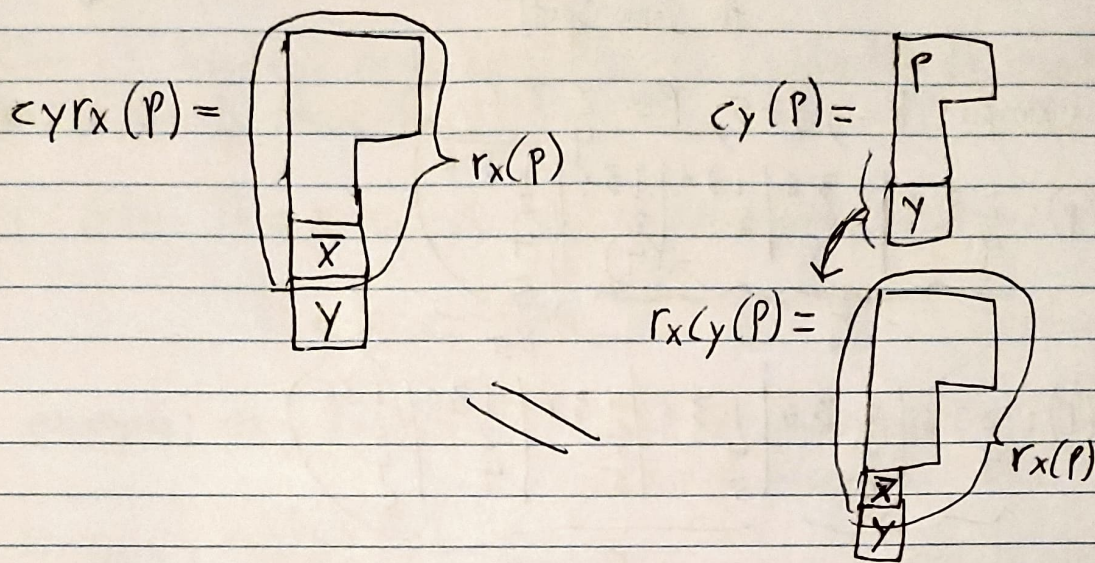 cyrx(P) =
rx(P)
x̄
y
cy(P) =
P
y
rxcy(P) =
rx(P)
x̄
y